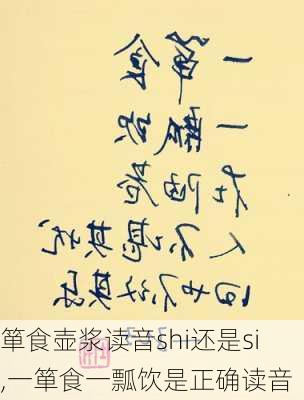 一箪食
一瓢饮
在陋巷
人不堪其忧
回也不改其乐
箪食壶浆读音shi还是si
,一箪食一瓢饮是正确读音